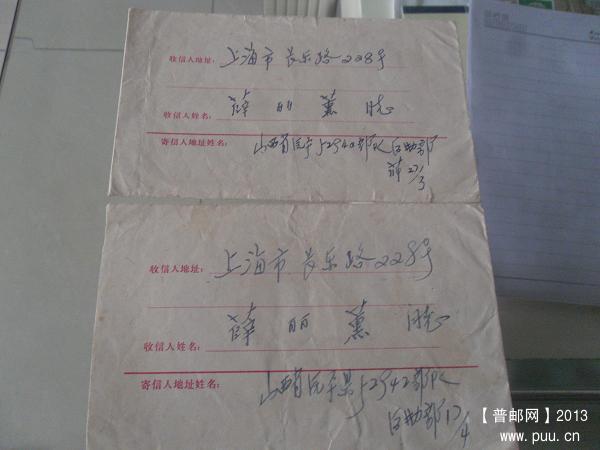 收信人地址: 上海市长乐路228号
收信人姓名: 薛丽薰
寄信人地址姓名: 山西省 52942部队后勤部
薛 27/3
收信人地址: 上海市长乐路228号
收信人姓名: 薛丽薰
寄信人地址姓名: 山西省 县52942部队
后勤部 17/4
【普邮网】2013
www.puu.cn